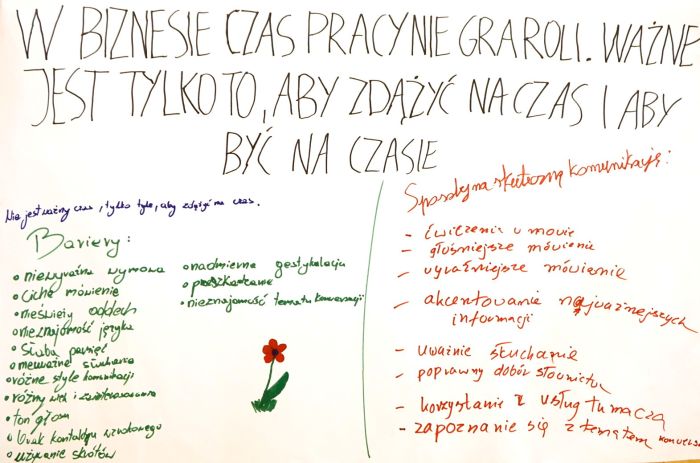 W BIZNESIE CZAS PRACY NIE GRA ROLI. WAŻNE
JEST TYLKO TO, ABY ZDĄŻYĆ NA CZAS I ABY
BYĆ NA CZASIE
Nie jest ważny czas, tylko tyle, aby zdążyć na czas.
Bariery:
niewyraźna wymowa
ciche mówienie
nieświeży oddech
nieznajomość języka
słaba pamięć
nieuważne słuchanie
różne style komunikacji
różny wiek i zainteresowania
ton głosu
brak kontaktu wzrokowego
używanie skrótów
nadmierna gestykulacja
przeszkadzanie
nieznajomość tematu konwersacji
Sposoby na skuteczną komunikację:
- ćwiczenia w mowie
- głośniejsze mówienie
- wyraźniejsze mówienie
- akcentowanie najważniejszych
informacji
- uważnie słuchanie
- poprawny dobór słownictwa
- korzystanie z usług tłumacza
- zapoznanie się z tematem